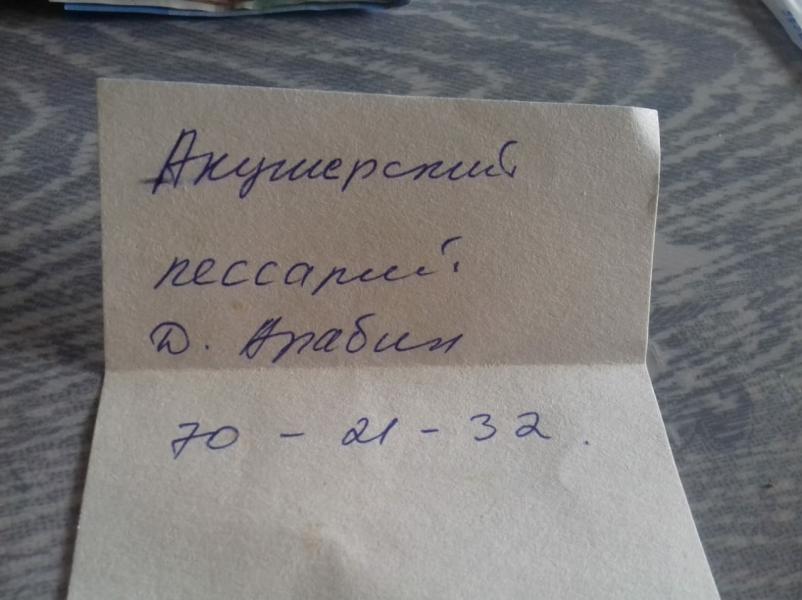 Акушерский
пессарий
Д. Арабин
70 - 21 - 32.